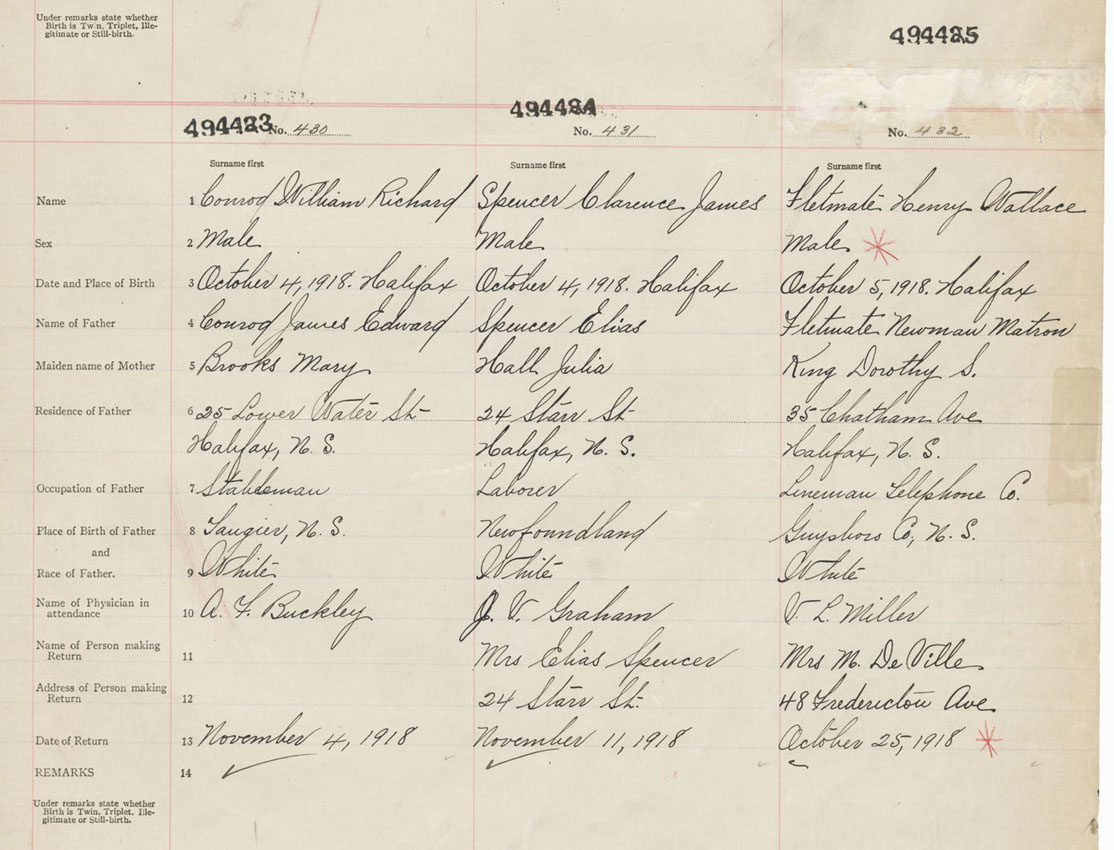 Under remarks state whether
Birth is Twin, Triplet, Ille-
gitimate or Still-birth.
494425
494423 No. 430
494424
No. 431
No. 432
Surname first Surname first Surname first
Name 1 Conrod William Richard Spencer Clarence James Fletmate Henry Wallace
Sex 2 Male Male Male
Date and Place of Birth 3 October 4, 1918. Halifax October 4, 1918. Halifax October 5, 1918. Halifax
Name of Father 4 Conrod James Edward Spencer Elias Fletmate Newman Matron
Maiden name of Mother 5 Brooks Mary Hall Julia King Dorothy S.
Residence of Father 6 25 Lower Water St 24 Starr St 35 Chatham Ave
Halifax, N. S. Halifax, N. S. Halifax, N. S.
Occupation of Father 7 Stableman Laborer Lineman Telephone Co.
Place of Birth of Father 8 Tangier, N. S. Newfoundland Guysboro Co, N. S.
and
Race of Father. 9 White White White
Name of Physician in
attendance 10 A. F. Buckley J. V. Graham V L. Miller
Name of Person making
Return 11 Mrs Elias Spencer Mrs M. De Ville
Address of Person making
Return 12 24 Starr St. 48 Fredericton Ave
Date of Return 13 November 4, 1918 November 11, 1918 October 25, 1918
REMARKS 14
Under remarks state whether
Birth is Twin, Triplet, Ille-
gitimate or Still-birth.